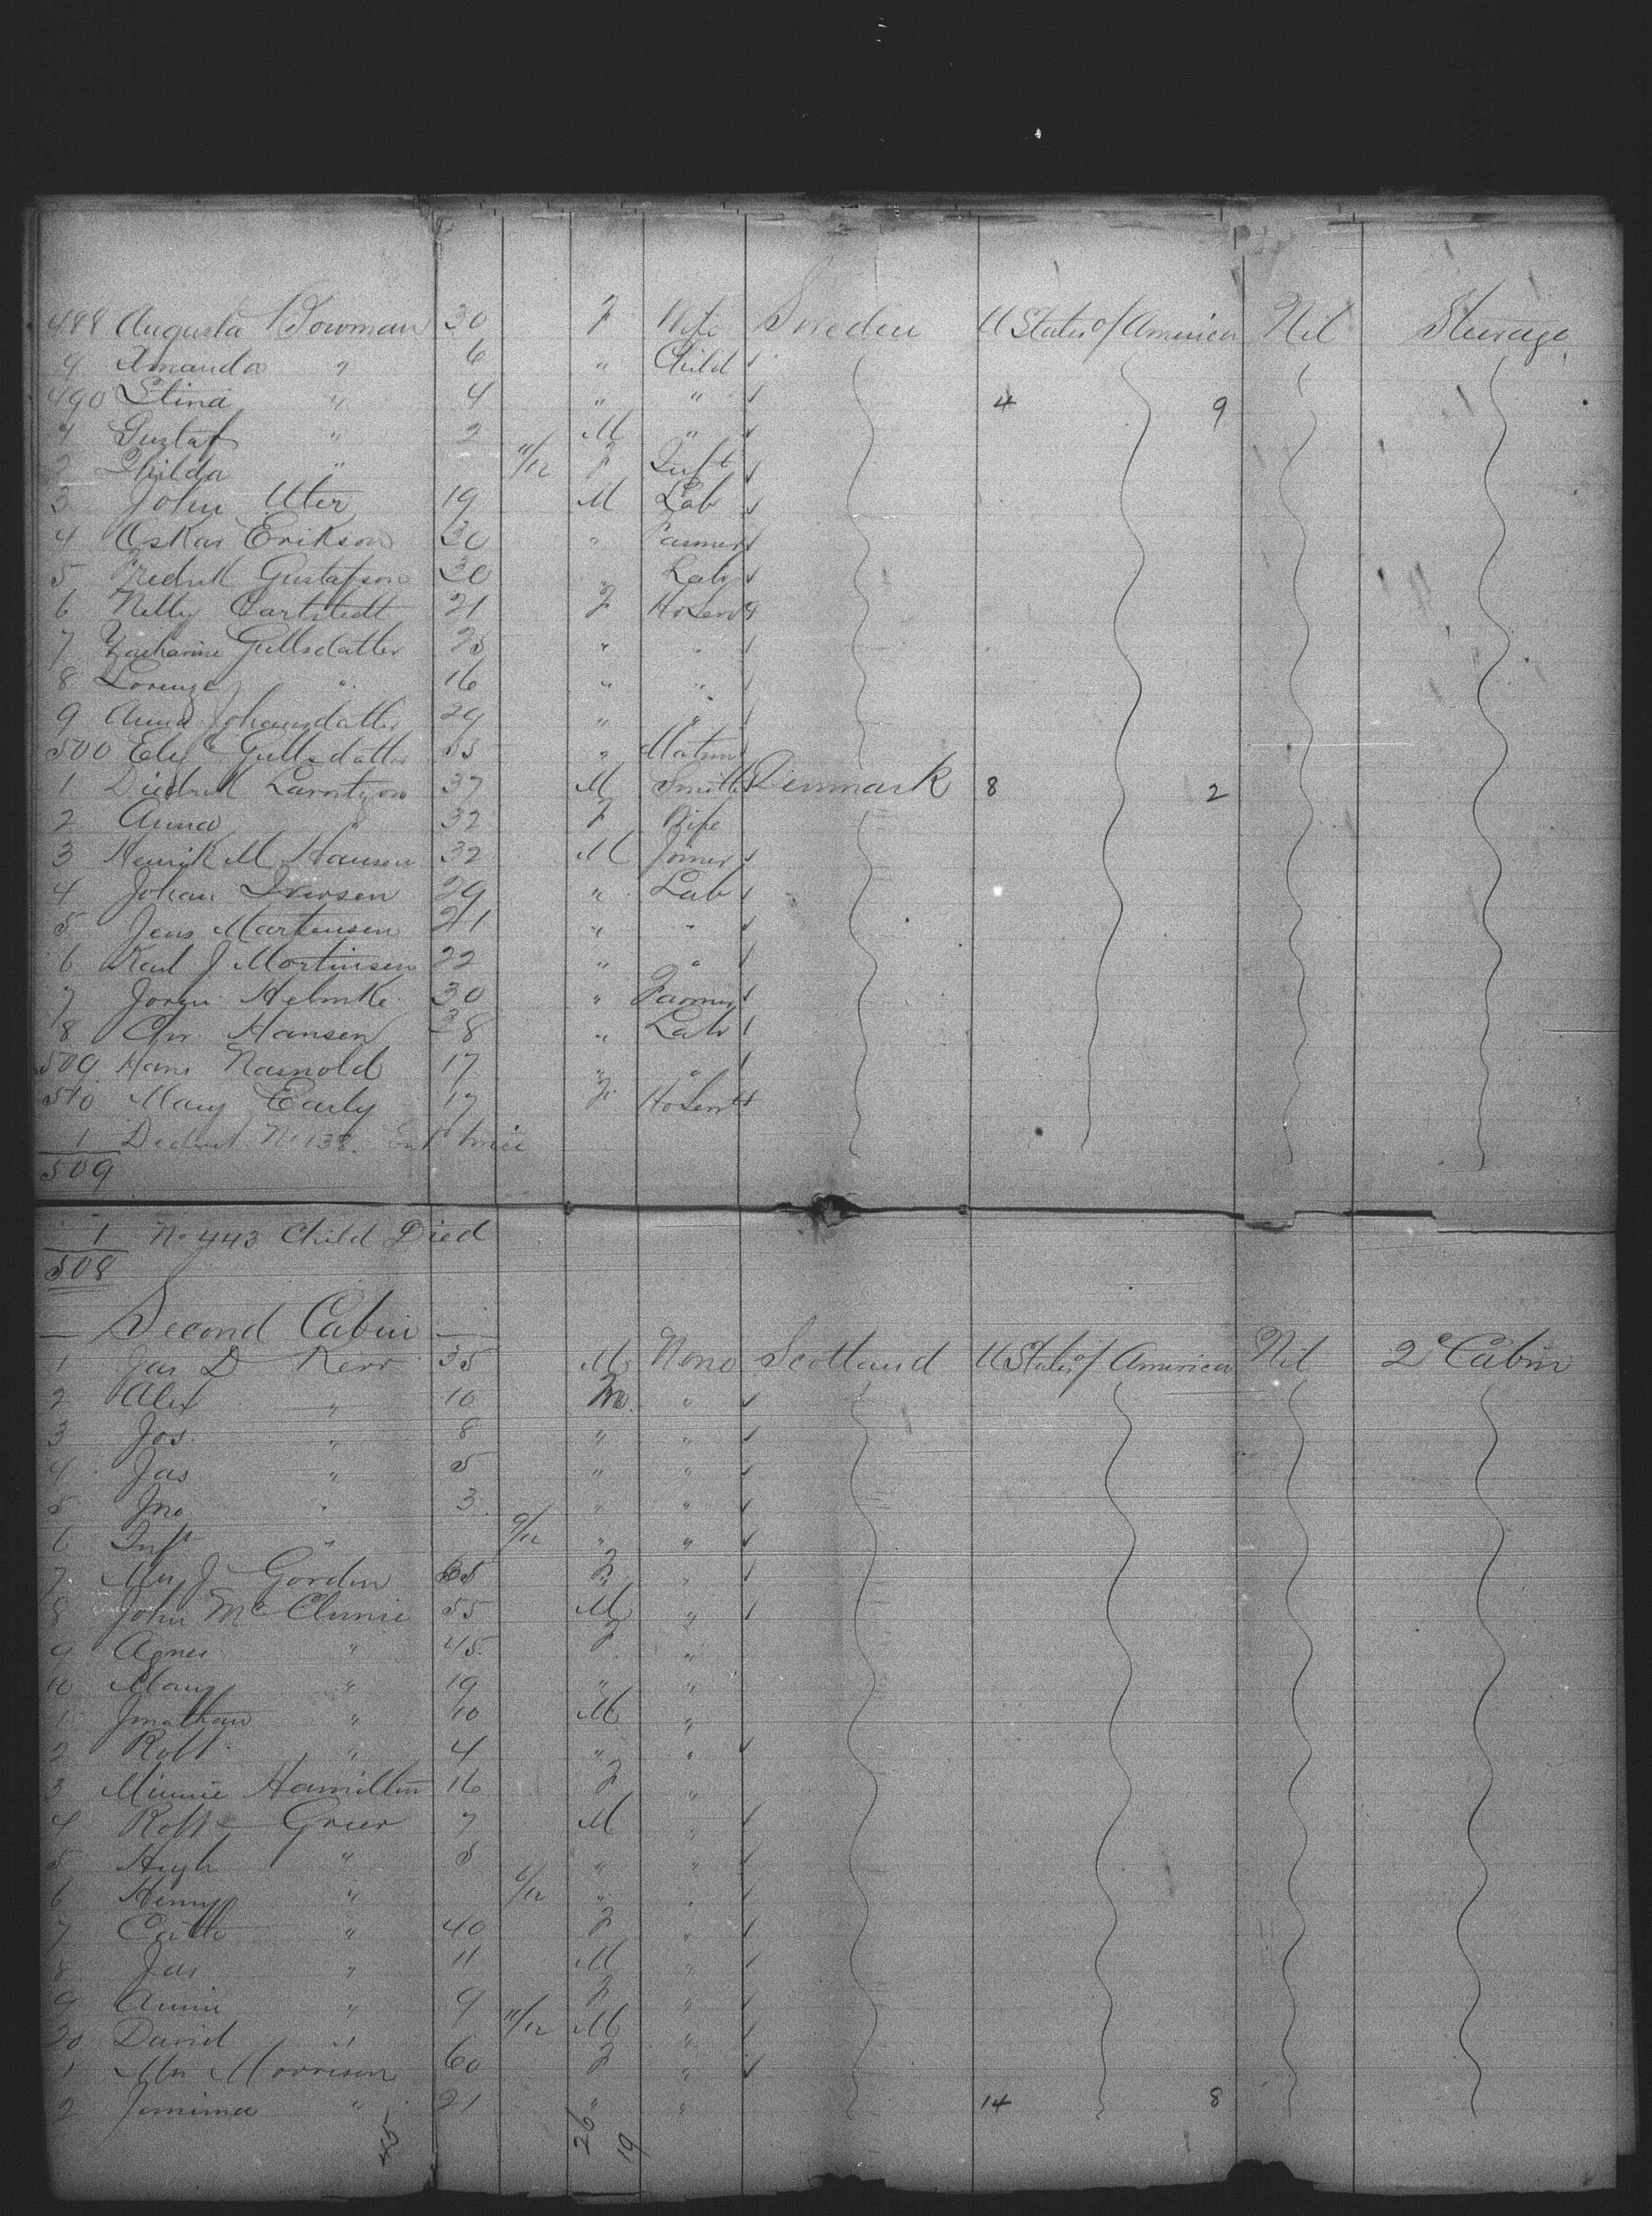 488 Augusta Bowman 30 F Wife Sweden U States of America Nil Steerage
9 Amanda " 6 " Child
490 Stina " 4 " " 4 9
1 Gustaf " 2 M "
2 Hilda " 11/12 F Inft
3 John Uter 19 M Lab
4 Oskar Erikson 30 " Farmer
5 Fredrik Gustafson 30 " Lab
6 Nelly Carlstedt 21 F Ho Servt
7 Zacharine Gullsdatter 25 " "
8 Lorenze " 16 " "
9 Anna Johansdatter 29 " "
500 Gullsdatter 53 " Matron
1 Diedrik 37 M Smith Denmark 8 2
2 Anna " 32 F Wife
3 Henrik M Hansen 32 M Joiner
4 Johan Iversen 29 " Lab
5 Jens Martensen 21 " "
6 Karl J Mortinsen 22 " "
7 Jorgn Helmke 30 " Farmer
8 Chr. Hansen 38 " Lab
509 Hans 17 " "
510 Mary Early 17 F Ho Servt
1 Deduct No 138. Ent twice
509
1 No 443 Child Died
508
— Second Cabin —
1 Jas D Kerr 35 M None Scotland U States of America Nil 2e Cabin
2 Alex " 10 M "
3 Jos. " 8 " "
4 Jas " 5 " "
5 Jno " 3 " "
6 Inft " 9/12 " "
7 Mrs J Gordon 65 F "
8 John McClunie 55 M "
9 Agnes " 45 F "
10 Mary " 19 " "
1 Jonathan " 10 M "
2 Robt " 4 " "
3 Minnie Hamilton 16 F "
4 Robt Grier 7 M "
5 Hugh " 5 " "
6 Henry " 6/12 " "
7 Cath " 40 F "
8 Jas " 11 M "
9 Annie " 9 F "
20 David " 11/12 M "
1 Mrs Morrison 60 F "
2 Jemima " 21 " " 14 8
45 26 19